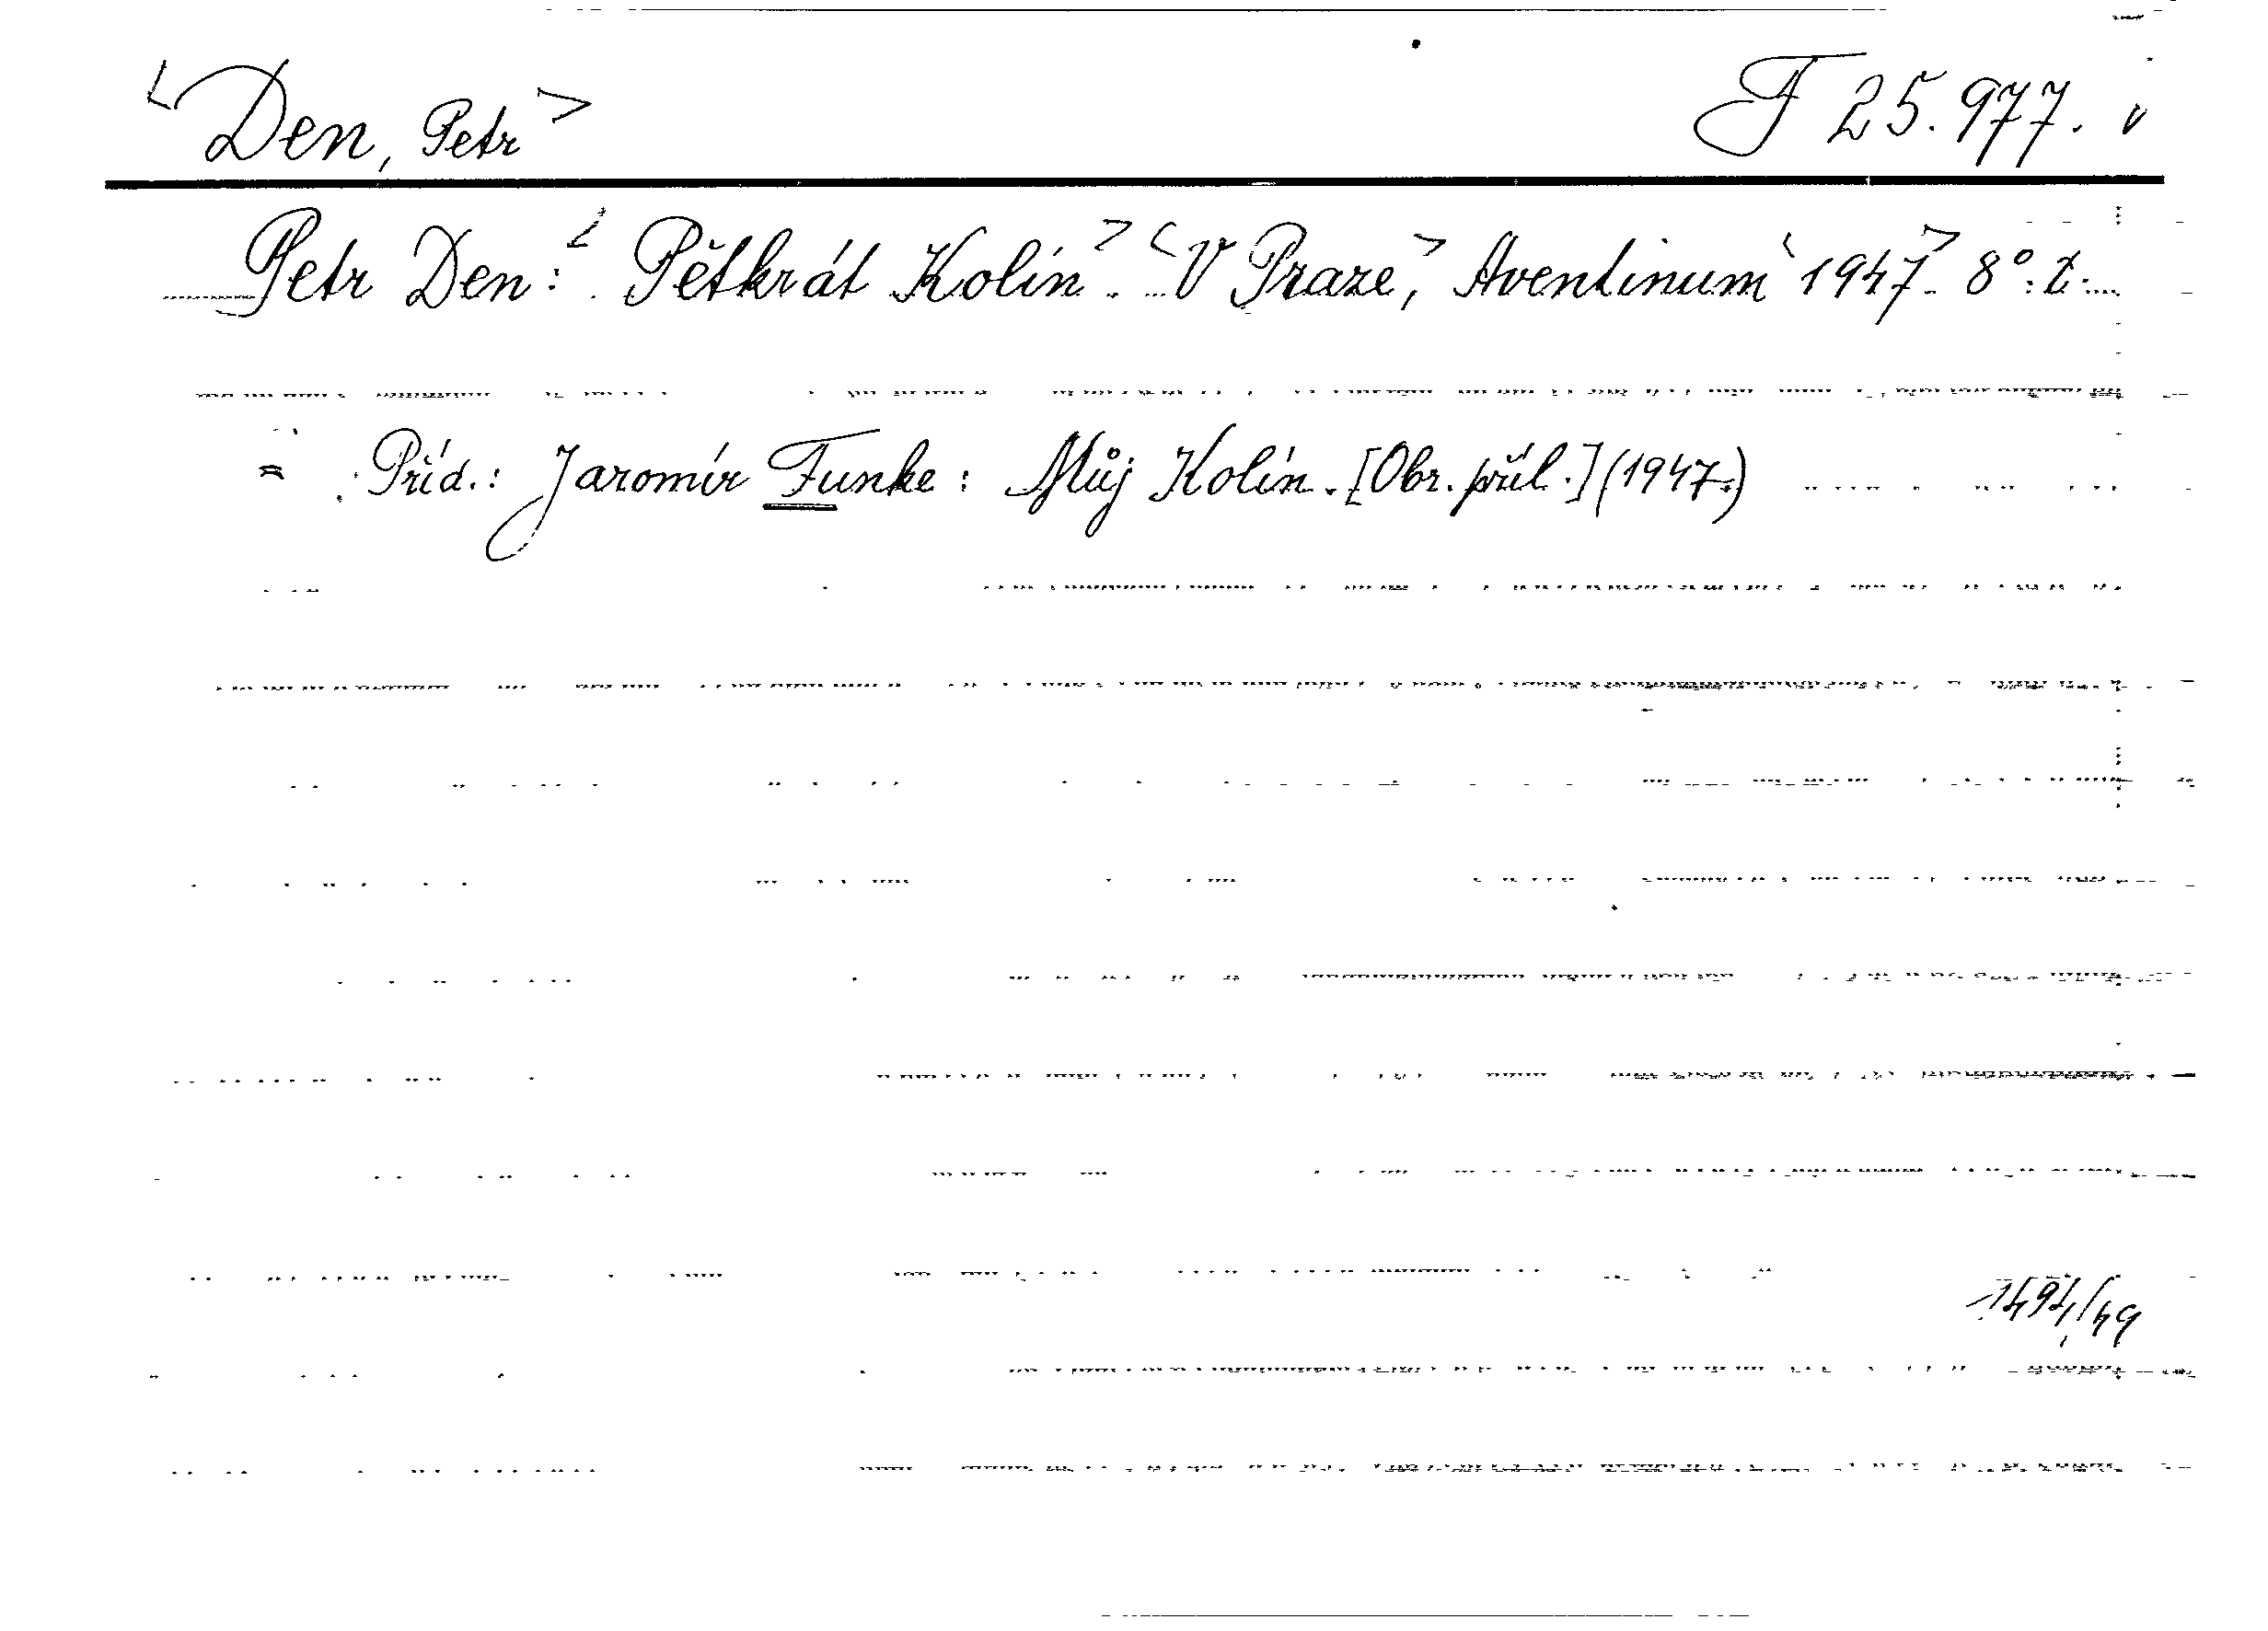 <Den, Petr> F 25.977. v
Petr Den: <Pětkrát Kolín>. <V Praze,> Aventinum <1947> 8°. t.
= Příd.: Jaromír Funke: Můj Kolín. [Obr. příl.] (1947.)
1494/49